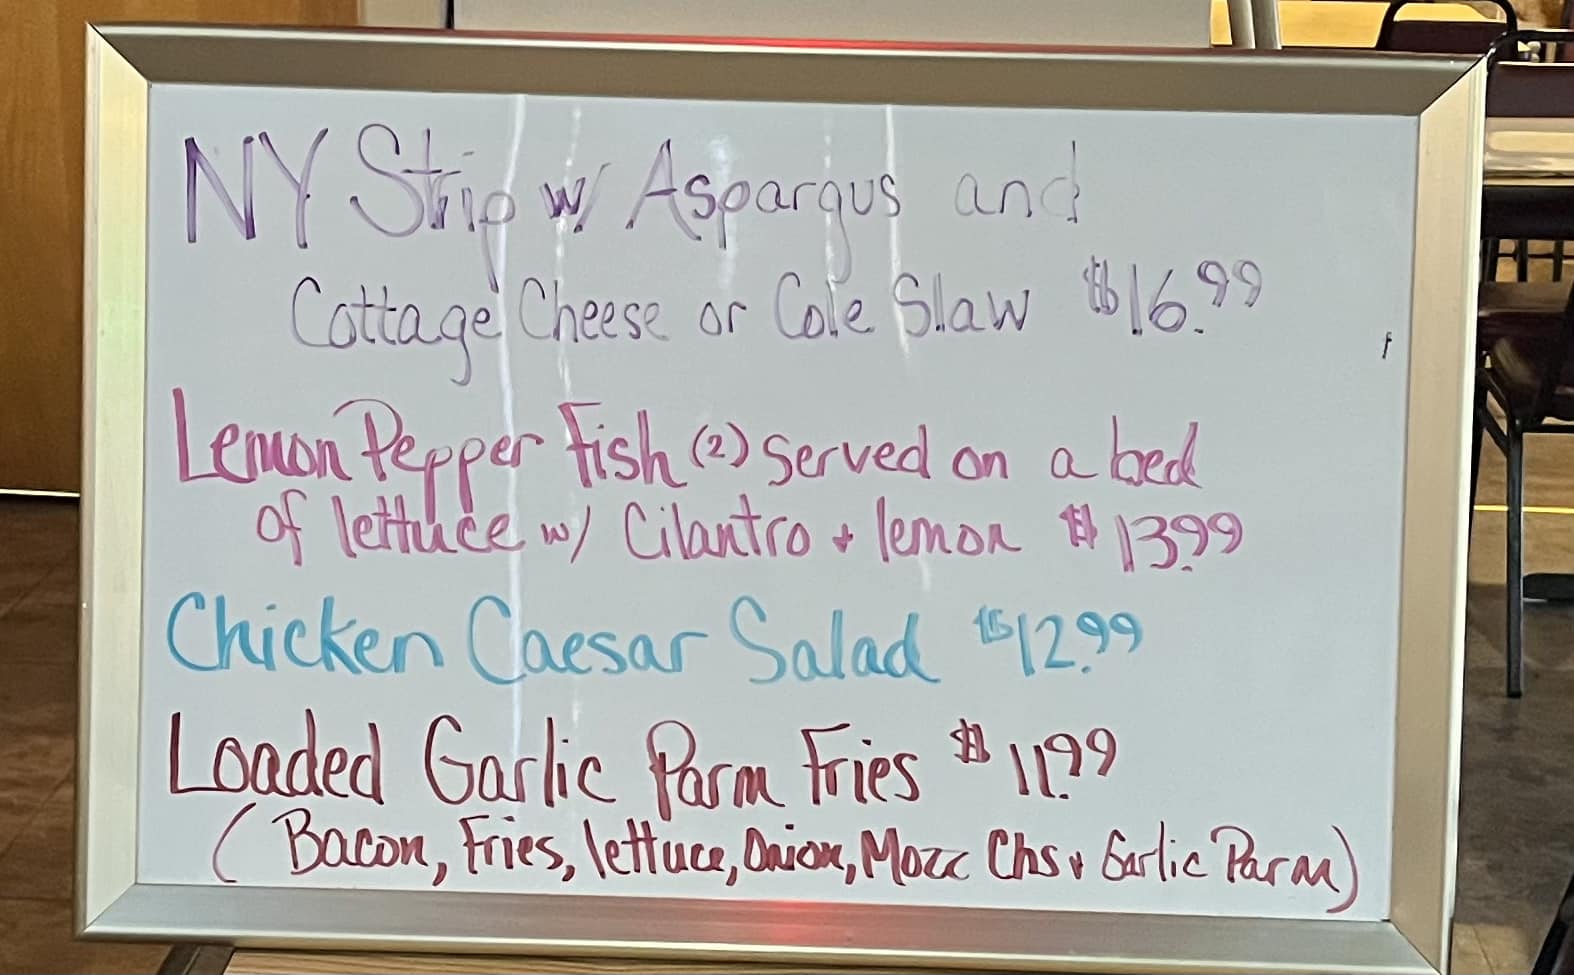 NY Strip w/ Aspargus and
Cottage Cheese or Cole Slaw $16.99
Lemon Pepper Fish (2) served on a bed
of lettuce w/ Cilantro + lemon $13.99
Chicken Caesar Salad $12.99
Loaded Garlic Parm Fries $11.99
(Bacon, Fries, lettuce, Onion, Mozz Chs + Garlic Parm)